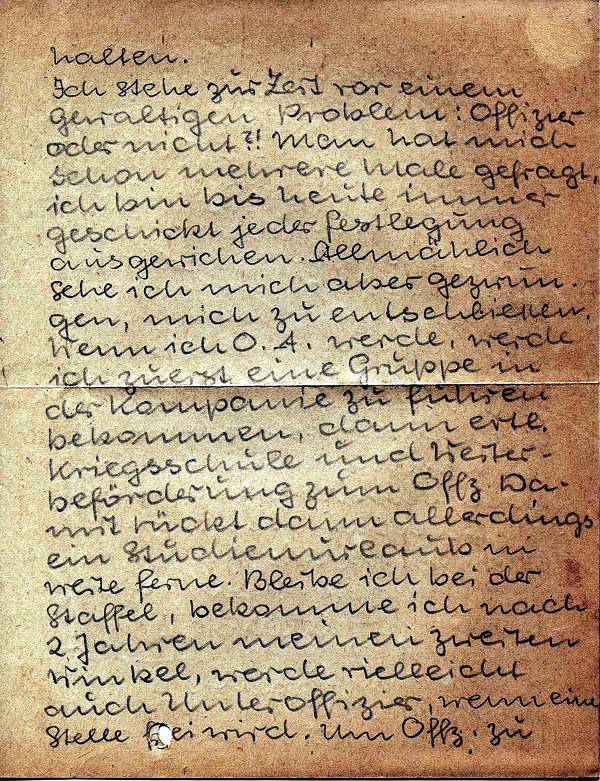 halten.
Ich stehe zur Zeit vor einem
gewaltigen Problem: Offizier
oder nicht?! Man hat mich
schon mehrere Male gefragt,
ich bin bis heute immer
geschickt jeder Festlegung
ausgewichen. Allmählich
sehe ich mich aber gezwun-
gen, mich zu entschließen.
Wenn ich O. A. werde, werde
ich zuerst eine Gruppe in
der Kompanie zu führen
bekommen, dann
Kriegsschule und Weiter-
beförderung zum Offz Da-
mit rückt dann allerdings
ein Studienurlaub in
weite Ferne. Bleibe ich bei der
Staffel, bekomme ich nach
2 Jahren meinen zweiten
Winkel, werde vielleicht
auch Unteroffizier, wenn eine
Stelle frei wird. Um Offz. zu